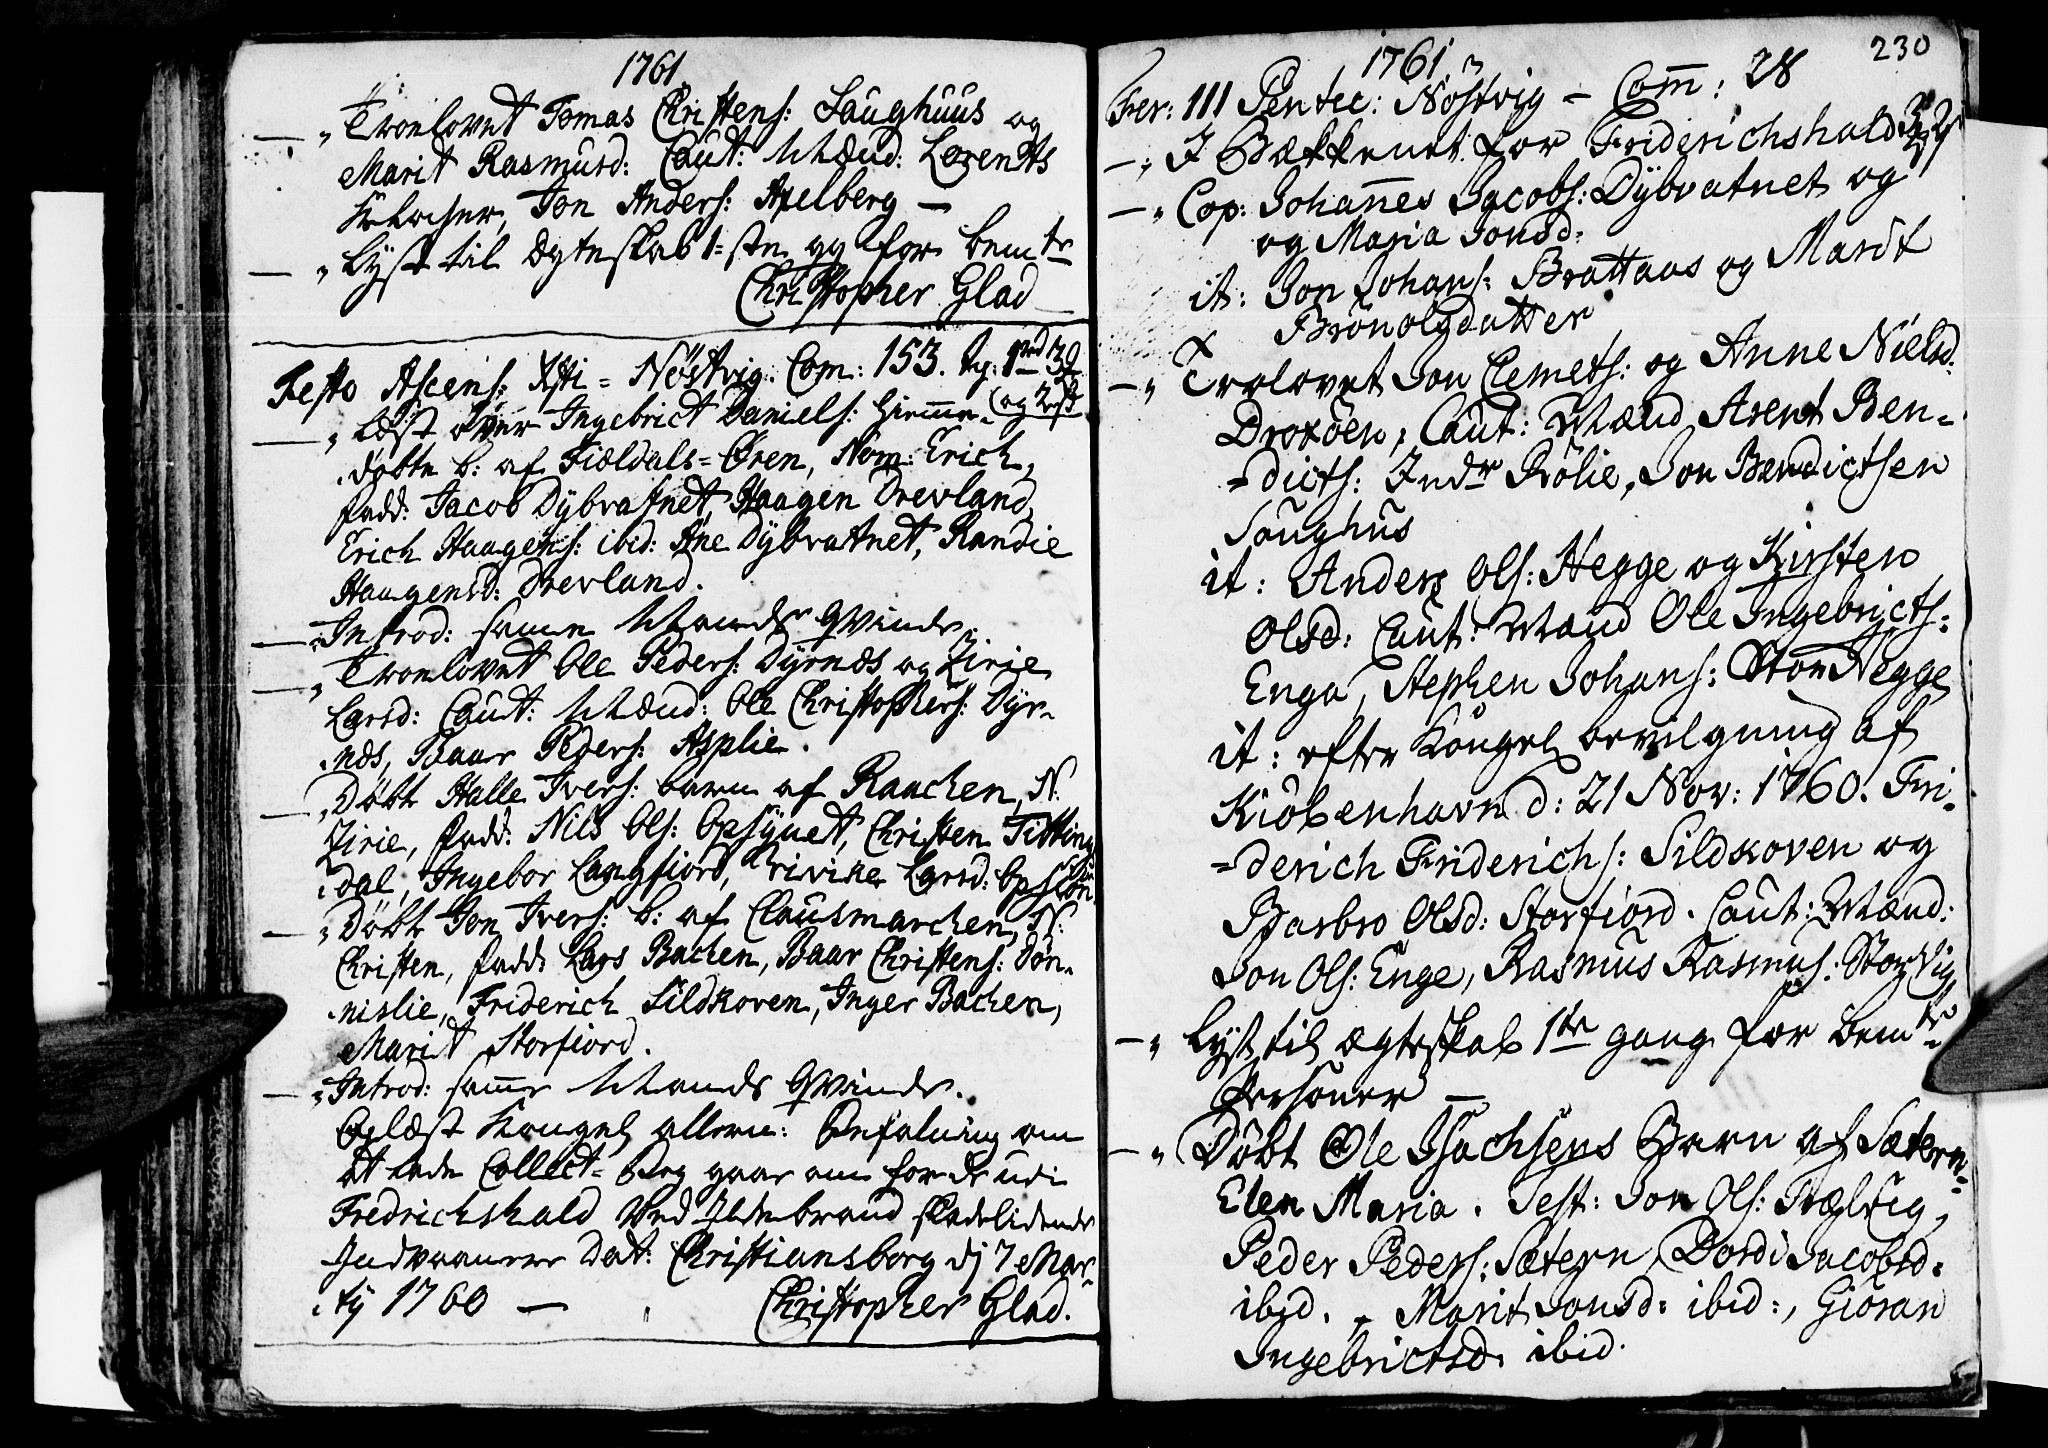 1761
— „ Troelovet Tomas Christens: Saughuus og
Marit Rasmusd: Caut: Mænd: Lorents
Klocker, Jon Anders: Apelberg —
— „ Lyst til Ægteskab 1-ste gg for bemte
Christopher Glad
Festo Ascens: Xsti = Nöstvig. Com: 153.
— „ Læst over Ingebrict Daniels: hiemme
døbte b: af Fieldals-Øren, Nom: Erich,
fadd: Jacob Dÿbvatnet, Haagen Drevland,
Erich Haagens: ibid: Ane Dÿbvatnet, Randie
Haagensd: Drevland.
— „ Introd: samme Mands Qvinde.
— „ Troelovet Ole Peders: Dÿrnæs og Zirie
Larsd: Caut: Mænd: Ole Christophers: Dÿr-
næs, Baar Peders: Asplie.
— „ Døbt Halle Ivers: barn af Raachen, N:
Zirie, fadd: Nils Ols: Opsÿnet, Christen Titting-
dal, Ingebor Langfiord, Larsd:
— „ Døbt Jon Ivers: b: af Clausmarchen, N:
Christen, fadd: Lars Bachen, Baar Christens: Døn-
nislie, Friderich Sildkoven, Inger Bachen,
Marit Storfiord.
— „ Introd: samme Mands Qvinde.
Oplæst Kongel allern: Befalning om
at lade Collect-Bog gaar om for de udi
Fredrichshald ved Ildebrand skadelidende
Indvaanere Dat: Christiansborg dj 7 Mar-
tÿ 1760 — Christopher Glad.
230
1761
Fer: III Pentec: Nöstvig — Com̄: 28
— „ I Bækkenet for Friderichshald
— „ Cop: Johan̄es Jacobs: Dÿbvatnet og
og Maria Jonsd:
it: Jon Johans: Brattaas og Mardt
Brönolgdatter
— „ Trolovet Jon Clemets: og Anne Nielsd:
Droxöen, Caut: Mænd Arent Ben-
-dicts: Indr Rölie, Jon Bendictsen
Saughus
it: Anders Ols: Hegge og Kirsten
Olsd: Caut: Mænd Ole Ingebricts:
Enga, Stephen Johans: Stor Hegge
it: efter Kongel bevilgning af
Kiöbenhavn d: 21 Nov: 1760. Fri-
-derich Friderichs: Sildkoven og
Barbro Olsd: Storfiord. Caut: Mænd:
Jon Ols: Enge, Rasmus Rasmus: Stor Vig
— „ Lyst til ægteskab 1te gang for bemte
Personer —
— „ Döbt Ole Isachsens Barn af Sætern-
Elen Maria. Test: Jon Ols: Bælvig,
Peder Peders: Sætern, Dordi Jacobsd:
ibid. „ Marit Jonsd: ibid:, Giöran
Ingebrictsd: ibid.